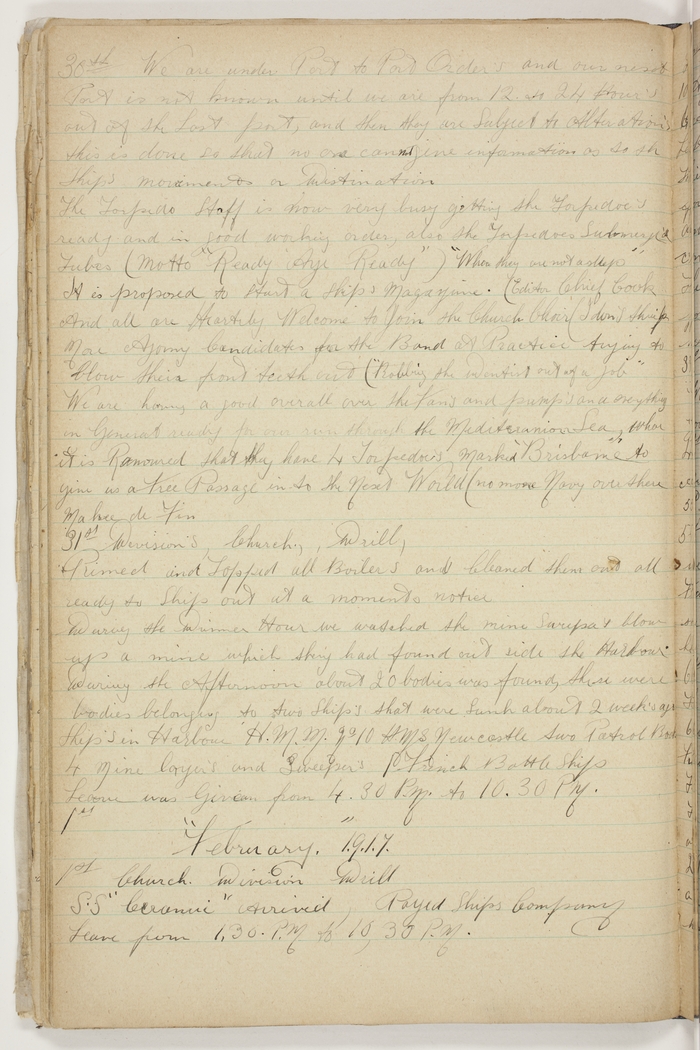 30th We are under Port to Port Order's and our next
Port is not known until we are from 12 to 24 Hour's
out of the Last port, and then they are Subject to Alteration's
this is done so that no one can give infamation as to the
Ship's movements or Distination
The Torpedo Staff is now very busy getting the Torpedoe's
ready and in good working order, also the Torpedoes Submerged
Tubes (Motto "Ready Aye Ready") "When they are not asleep"
It is proposed to Start a Ship's Magazine. (Editor Chief Cook
And all are Heartily Welcome to join the Church Choir (I don't think
More Agony Candidates for the Band at Practice trying to
blow their front teeth out ("Robbing the dentist out of a job"
We are having a good overall over the Fans and pump's and everything
in General ready for our run through the Mediteranion Sea, where
it is Ramoured that they have 4 Torpedoe's, Marked "Brisbane" to
give us a Free Passage in to the Next World (no more Navy over there
31st Division's, Church, Drill,
Trimed and Topped all Boiler's and Cleaned them and all
ready to Ship out at a moments notice
During the Dinner Hour we watched the mine Sweeper blow
up a mine which they had found out side the Harbour
During the Afternoon about 20 bodies was found, these were
bodies belonging to two Ship's that were Sunk about 2 week's ago
Ship's in Harbour H.M.M. No 10 HMS Newcastle two Patrol
4 Mine layer's and Sweeper's French Battle Ships
Leave was Given from 4.30 P.M. to 10.30 P.M.
1st
"February." 1917.
1st Church. Division Drill
S.S "Ceramic" Arrived, Payed Ships Company
Leave from 1.30. P.M. to 10,30 P.M.